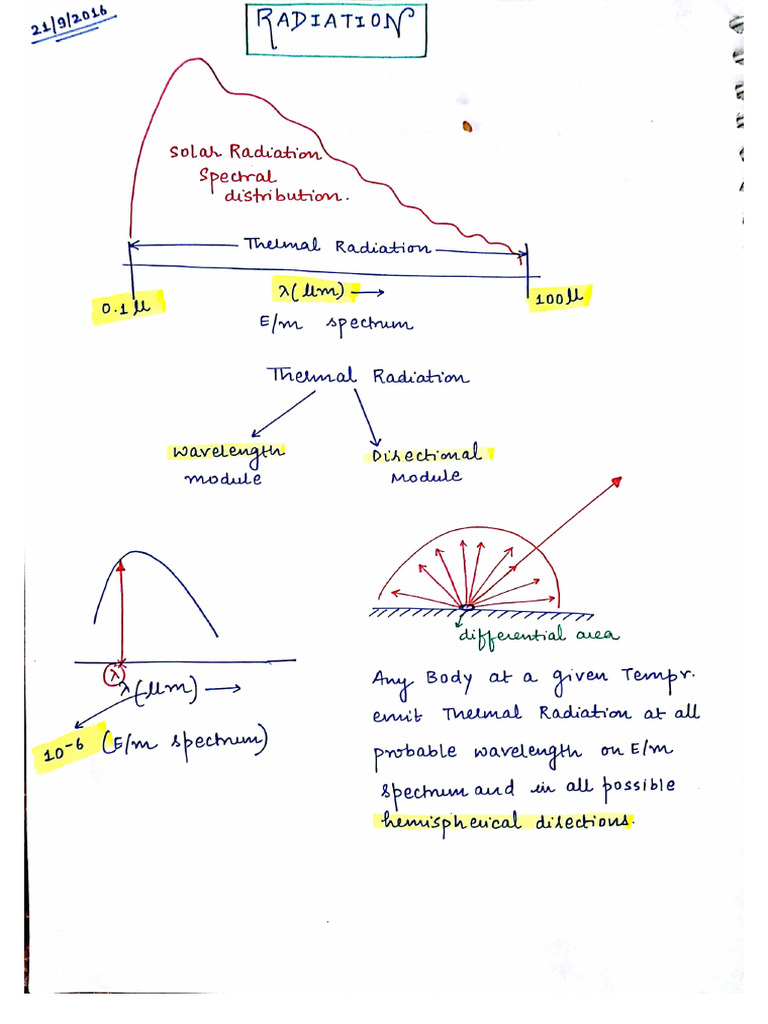 21/9/2016
RADIATION
Solar Radiation
Spectral
distribution.
Thermal Radiation
0.1 μ
λ(μm) →
100 μ
E/m spectrum
Thermal Radiation
Wavelength
module
Directional
Module
differential area
λ
λ(μm) →
10⁻⁶ (E/m spectrum)
Any Body at a given Tempr.
emit Thermal Radiation at all
probable wavelength on E/m
spectrum and in all possible
hemispherical directions.